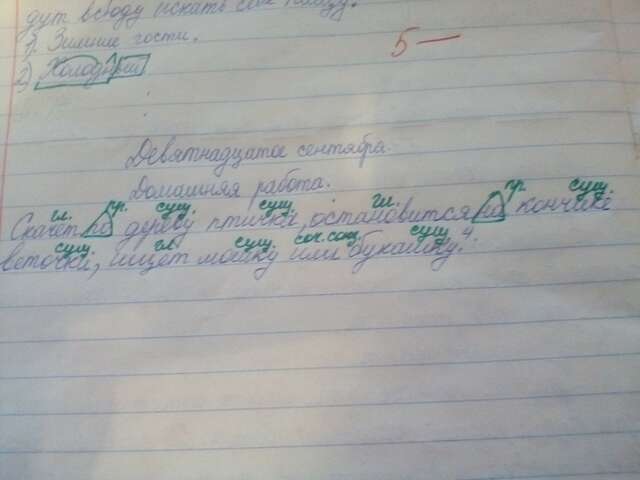 дут всюду искать себе пищу.
1). Зимние гости.
5 —
2) Холодный
Девятнадцатое сентября.
Домашняя работа.
гл. пр. сущ. сущ гл. пр. сущ.
Скачет по дереву птичка, остановится на кончике
сущ. гл сущ. соч.союз. сущ. 4
веточки, ищет мошку или букашку.